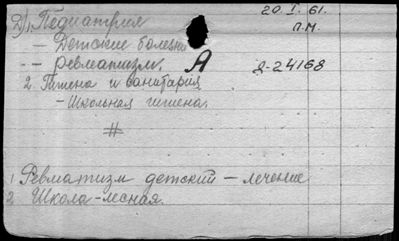 Д), Педиатрия 20.I.61.
— Детские болезни П.М.
-- Ревматизм. А Д-24168
2. Гигиена и санитария
- Школьная гигиена.
#
1. Ревматизм детский — лечение
2. Школа - лесная.